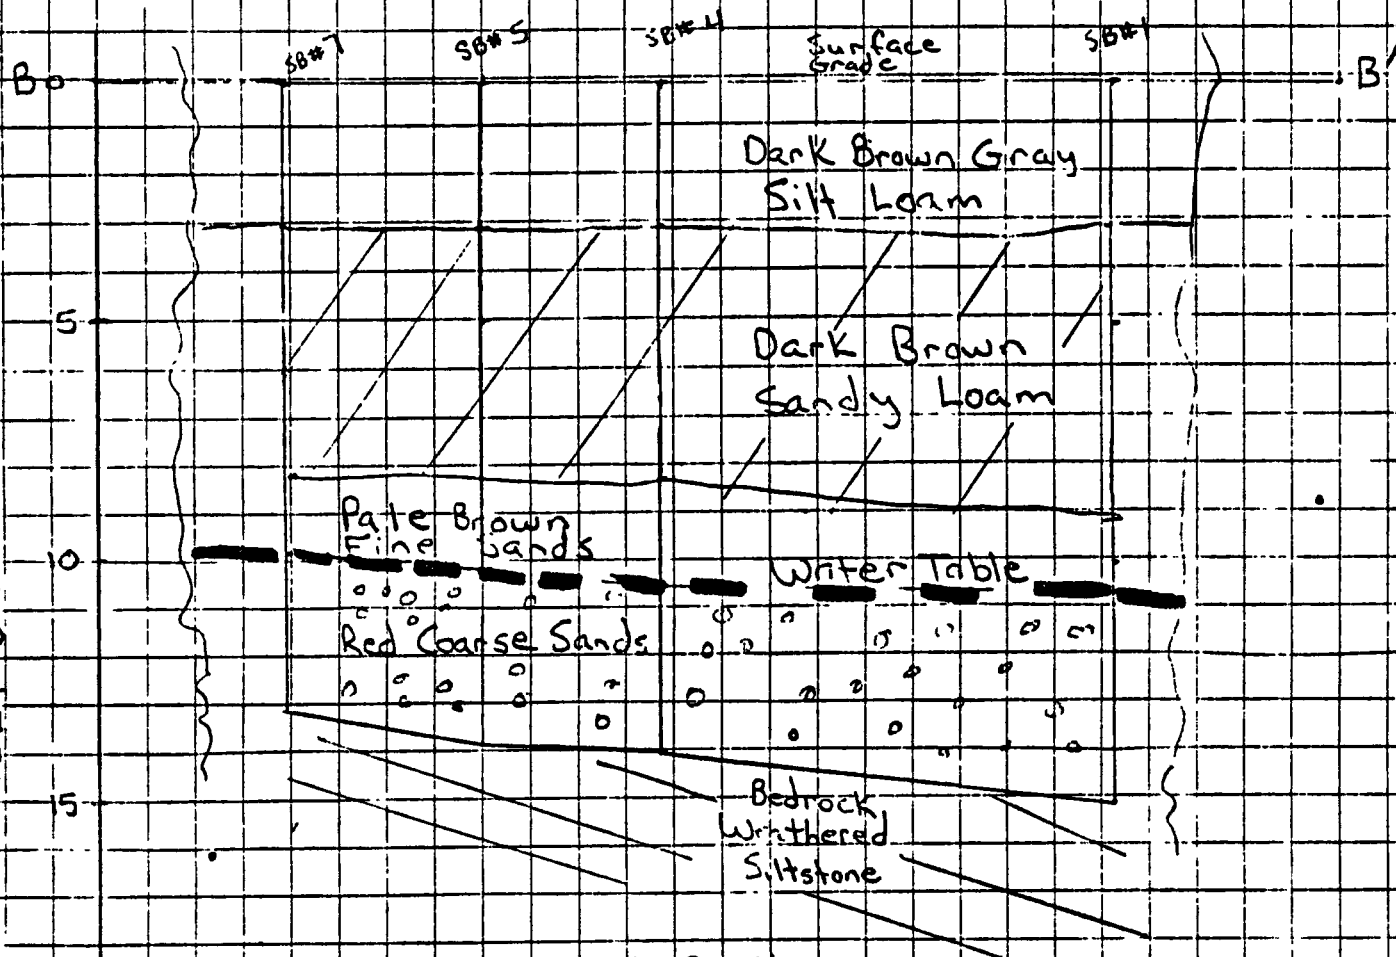 SB#7
SB#5
SB#4
Surface
Grade
SB#1
B
0
B'
Dark Brown Gray
Silt Loam
5
Dark Brown
Sandy Loam
Pale Brown
Fine Sands
10
Water Table
Red Coarse Sands
15
Bedrock
Weathered
Siltstone